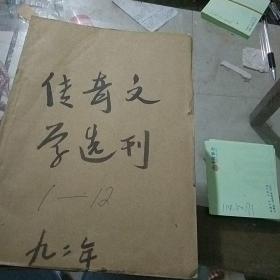 传奇文
学选刊
1—12
九二年